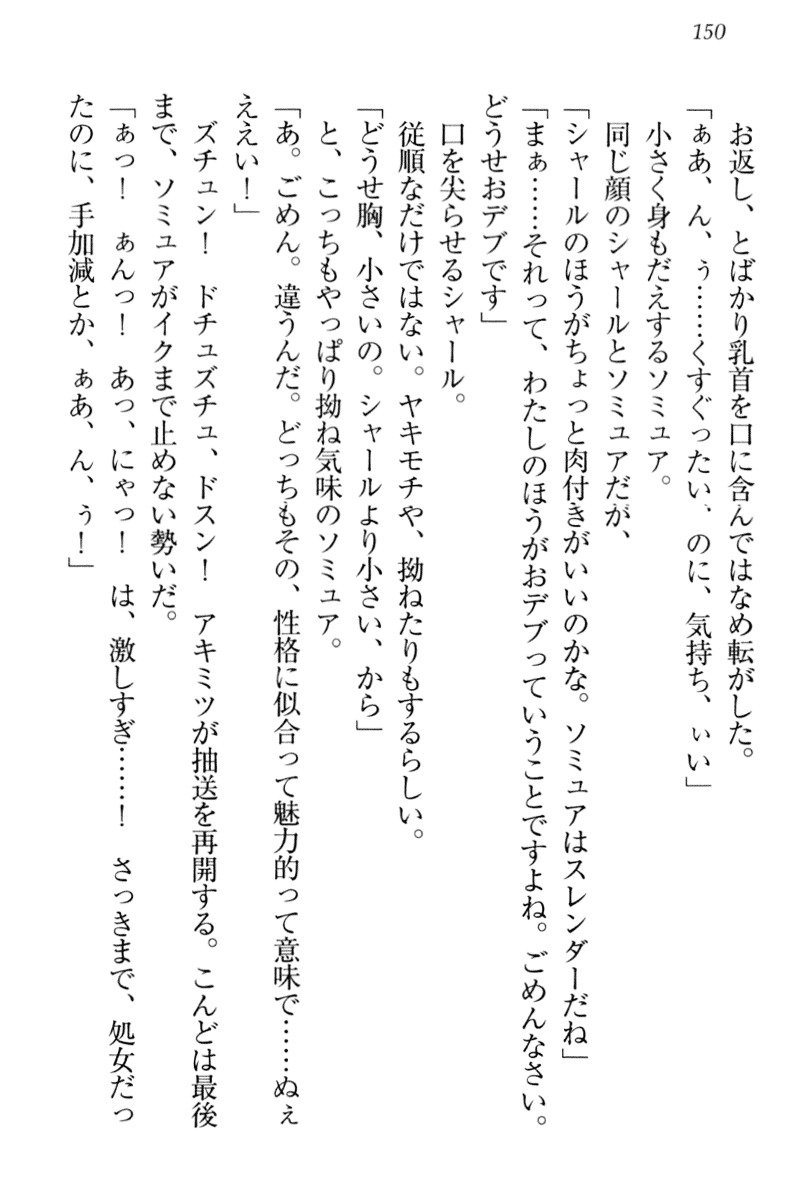 150
お返し、とばかり乳首を口に含んではなめ転がした。
「ぁあ、ん、ぅ……くすぐったい、のに、気持ち、ぃい」
小さく身もだえするソミュア。
同じ顔のシャールとソミュアだが、
「シャールのほうがちょっと肉付きがいいのかな。ソミュアはスレンダーだね」
「まぁ……それって、わたしのほうがおデブっていうことですよね。ごめんなさい。
どうせおデブです」
口を尖らせるシャール。
従順なだけではない。ヤキモチや、拗ねたりもするらしい。
「どうせ胸、小さいの。シャールより小さい、から」
と、こっちもやっぱり拗ね気味のソミュア。
「あ。ごめん。違うんだ。どっちもその、性格に似合って魅力的って意味で……ぬぇ
ええい！」
ズチュン！　ドチュズチュ、ドスン！　アキミツが抽送を再開する。こんどは最後
まで、ソミュアがイクまで止めない勢いだ。
「ぁっ！　ぁんっ！　あっ、にゃっ！　は、激しすぎ……！　さっきまで、処女だっ
たのに、手加減とか、ぁあ、ん、ぅ！」